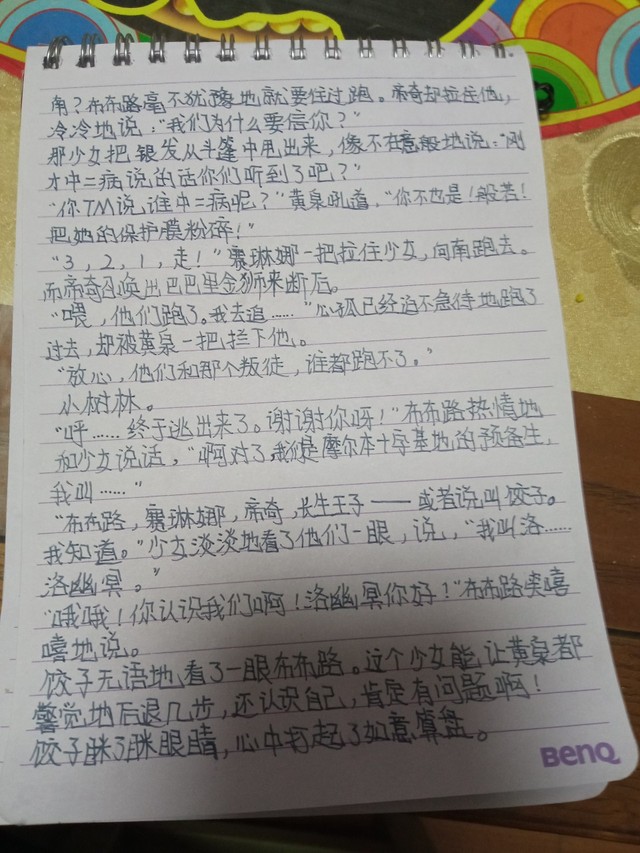 角？布布路毫不犹豫地就要往过跑。帝奇却拉住他，
冷冷地说：“我们为什么要信你？”
那少女把银发从斗篷中甩出来，像不在意般地说：“刚
才中二病说的话你们听到了吧？”
“你TM说谁中二病呢？”黄泉吼道，“你不也是！般若！
把她的保护膜粉碎！”
“3，2，1，走！”赛琳娜一把拉住少女，向南跑去。
而帝奇召唤出巴巴里金狮来断后。
“喂，他们跑了。我去追……”心狐已经迫不急待地跑了
过去，却被黄泉一把拦下他。
“放心，他们和那个叛徒，谁都跑不了。”
小树林。
“呼……终于逃出来了。谢谢你呀！”布布路热情地
和少女说话，“啊对了，我们是摩尔本十字基地的预备生，
我叫……”
“布布路，赛琳娜，帝奇，长生王子——或者说叫饺子。
我知道。”少女淡淡地看了他们一眼，说，“我叫洛……
洛幽冥。”
“哦哦！你认识我们啊！洛幽冥你好！”布布路笑嘻
嘻地说。
饺子无语地看了一眼布布路。这个少女能让黄泉都
警觉地后退几步，还认识自己，肯定有问题啊！
饺子眯了眯眼睛，心中打起了如意算盘。
BenQ